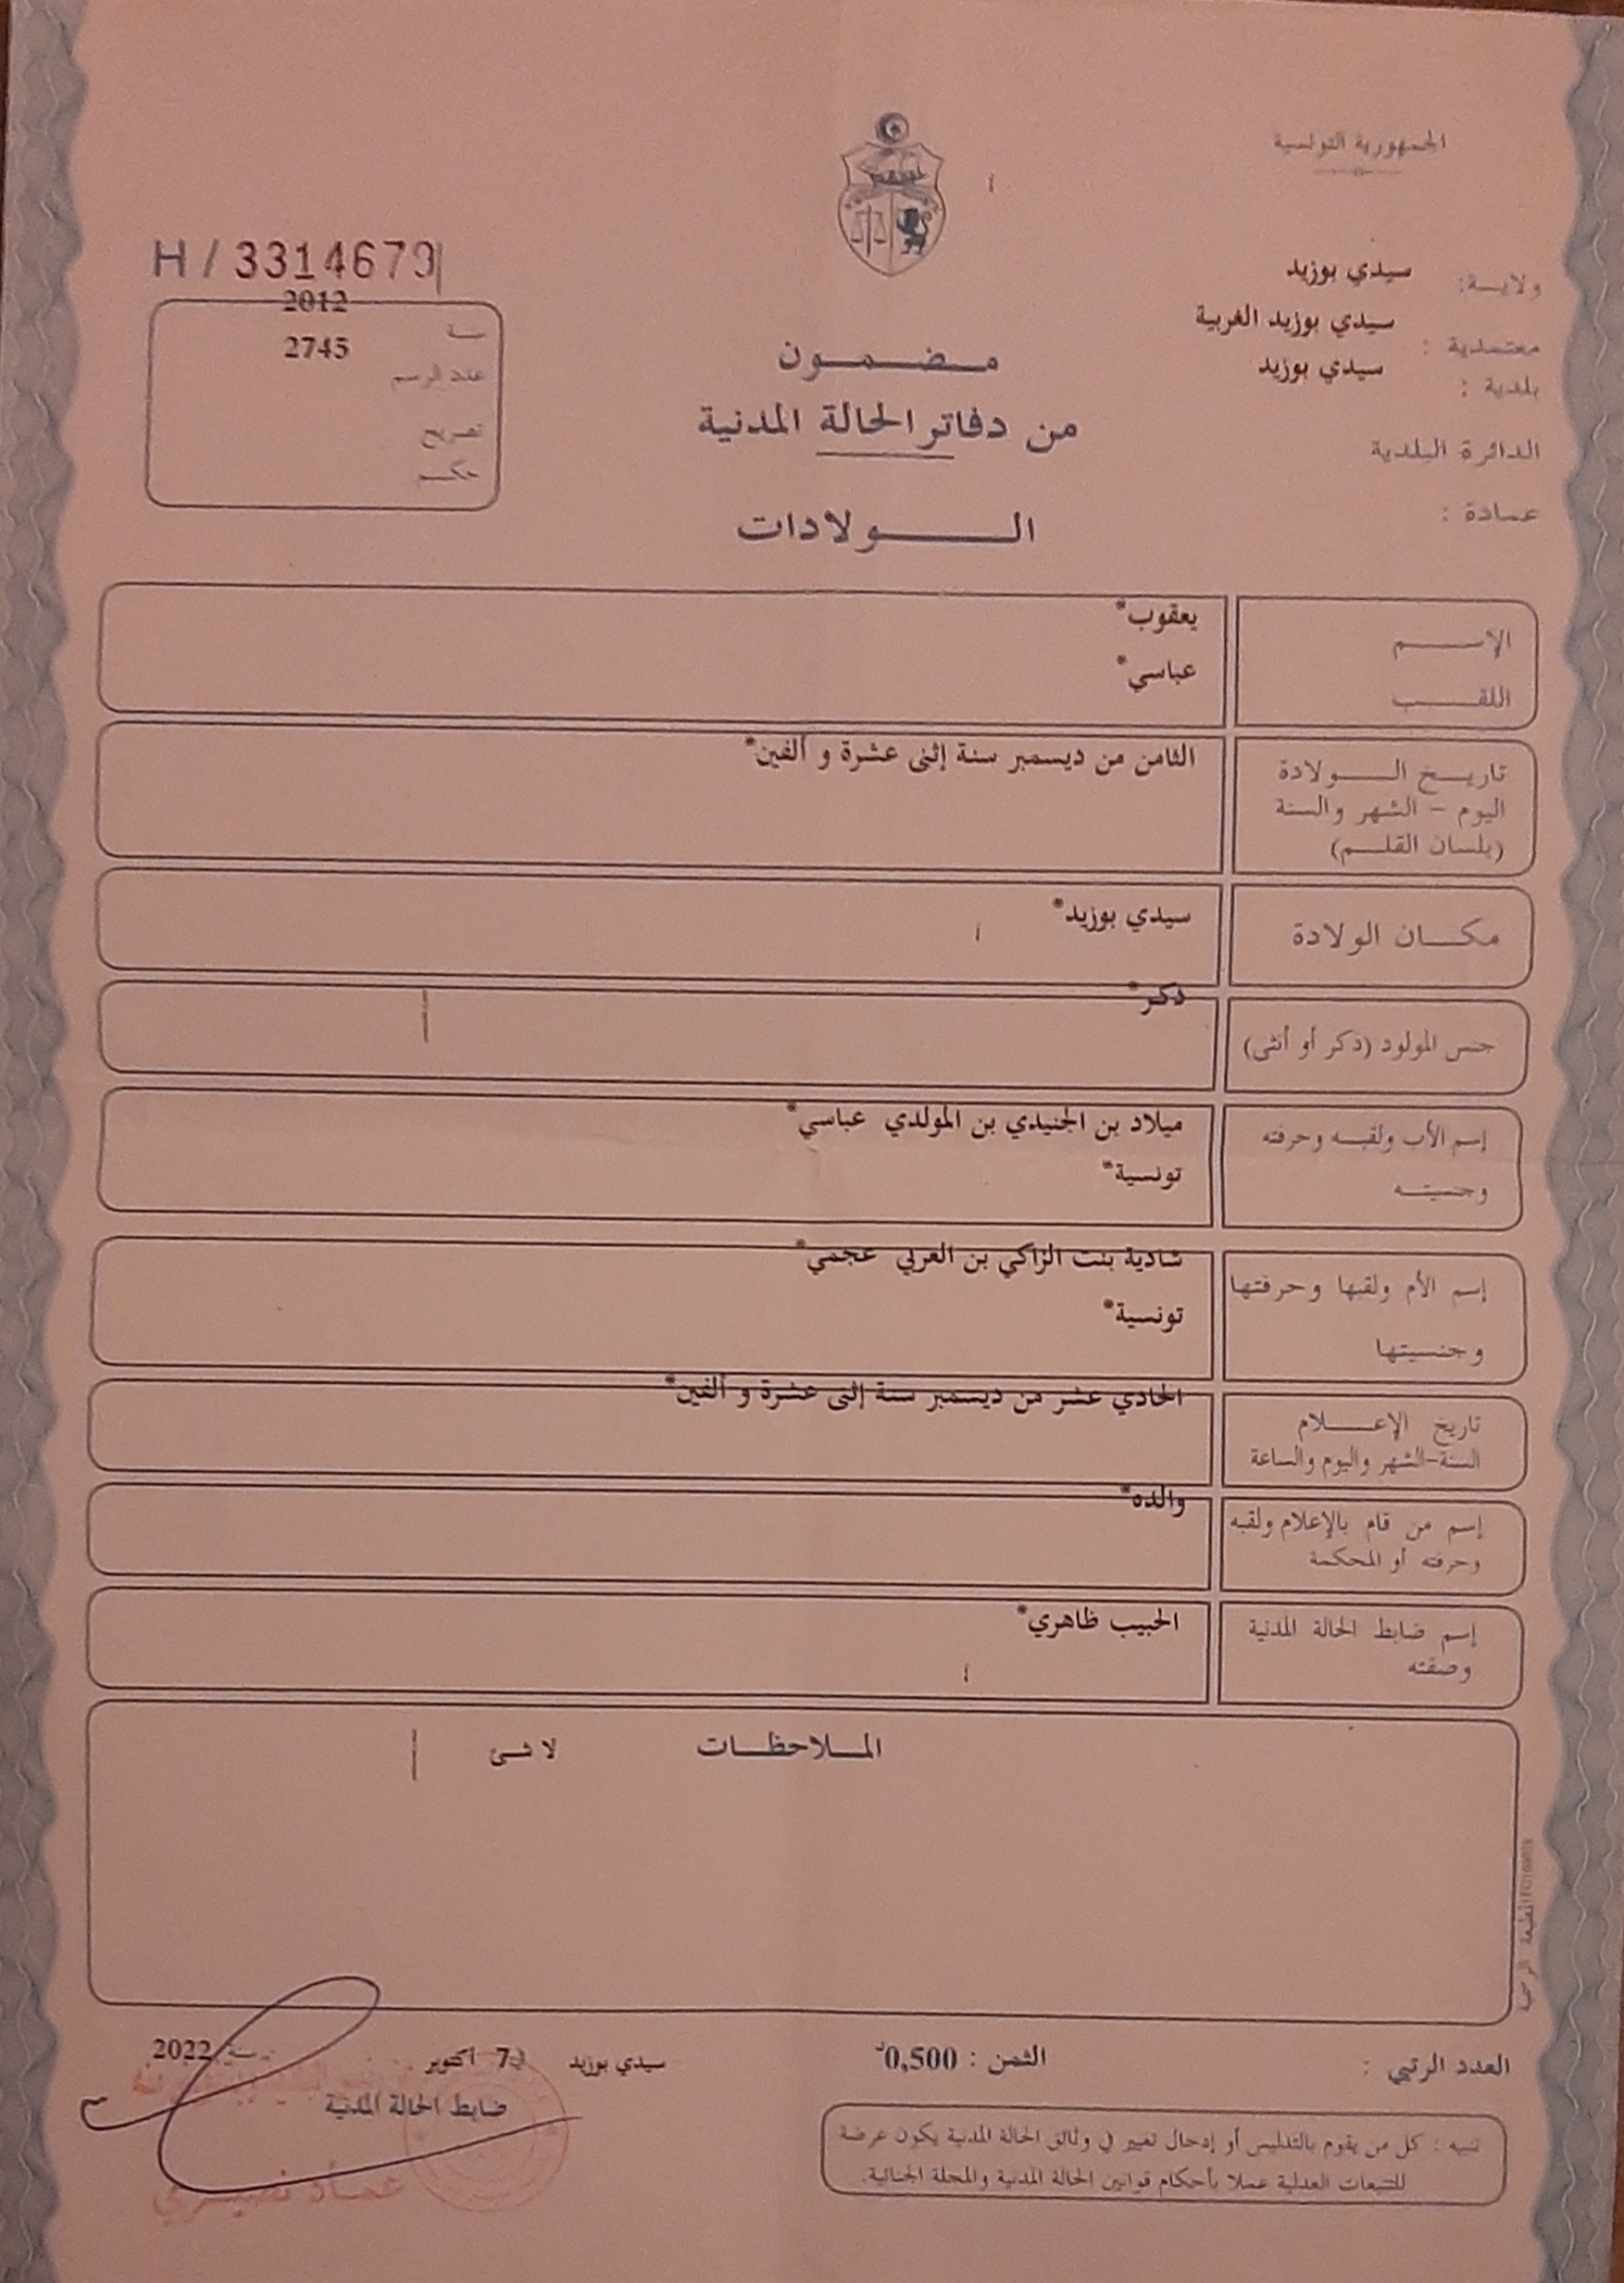 الجمهورية التونسية
ولايـة: سيدي بوزيد
معتمدية : سيدي بوزيد الغربية
بلدية : سيدي بوزيد
الدائرة البلدية
عمادة :
مـضـمـون
من دفاتر الحالة المدنية
الـولادات
H / 3314679
سنة 2012
عدد الرسم 2745
تصريح
حكـم
الإسـم يعقوب*
اللقـب عباسي*
تاريـخ الـولادة الثامن من ديسمبر سنة إثنى عشرة و ألفين*
اليوم – الشهر والسنة
(بلسان القلـم)
مكـان الولادة سيدي بوزيد*
جنس المولود (ذكر أو أنثى) ذكر*
إسم الأب ولقبـه وحرفته ميلاد بن الجنيدي بن المولدي عباسي*
وجنسيتـه تونسية*
إسم الأم ولقبها وحرفتها شادية بنت الزاكي بن العربي عجمي*
وجنسيتها تونسية*
تاريخ الإعـلام الحادي عشر من ديسمبر سنة إثنى عشرة و ألفين*
السنة-الشهر واليوم والساعة
إسم من قام بالإعلام ولقبه والده*
وحرفته أو المحكمة
إسم ضابط الحالة المدنية الحبيب ظاهري*
وصفته
المـلاحظـات لا شئ
المطبعة الرسمية
العدد الرتبي :
الثمن : 0,500د
سيدي بوزيد 7 أكتوبر سنة 2022
ضابط الحالة المدنية
عمـاد نصيـري
تنبيه : كل من يقوم بالتدليس أو إدخال تغيير في وثائق الحالة المدنية يكون عرضة
للتتبعات العدلية عملا بأحكام قوانين الحالة المدنية والمجلة الجنائية.